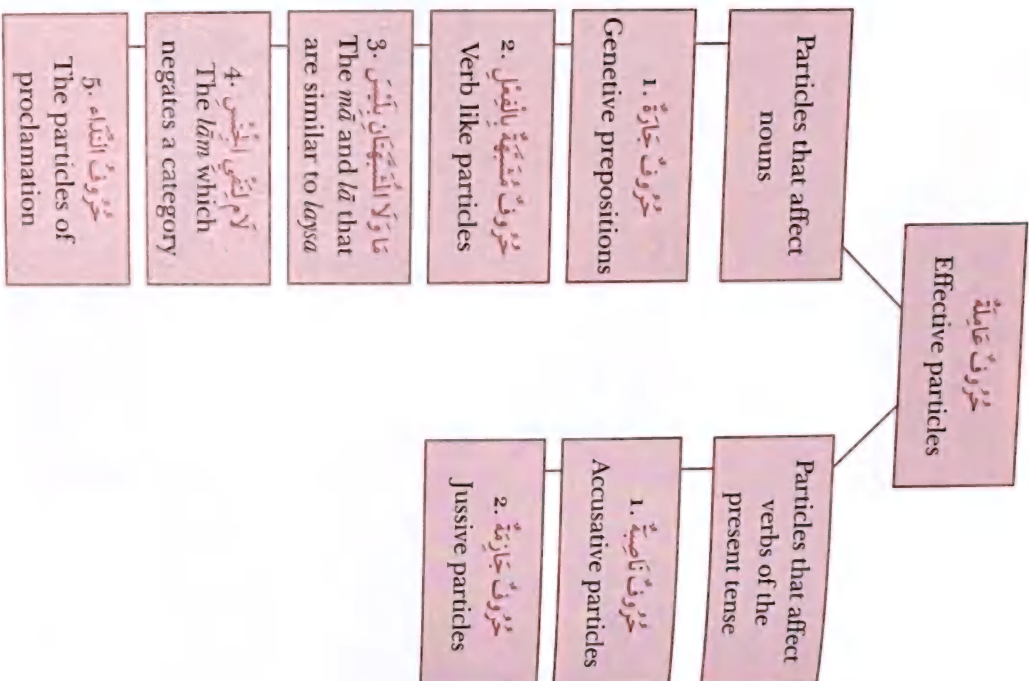 حُرُوفٌ عَامِلَةٌ
Effective particles
Particles that affect
nouns
1. حُرُوفٌ جَارَّةٌ
Genetive prepositions
2. حُرُوفٌ مُشَبَّهَةٌ بِالْفِعْلِ
Verb like particles
3. مَا وَلَا الْمُشَبَّهَتَانِ بِلَيْسَ
The mā and lā that
are similar to laysa
4. لَامُ لِنَفْيِ الْجِنْسِ
The lām which
negates a category
5. حُرُوفُ النِّدَاءِ
The particles of
proclamation
Particles that affect
verbs of the
present tense
1. حُرُوفٌ نَاصِبَةٌ
Accusative particles
2. حُرُوفٌ جَازِمَةٌ
Jussive particles